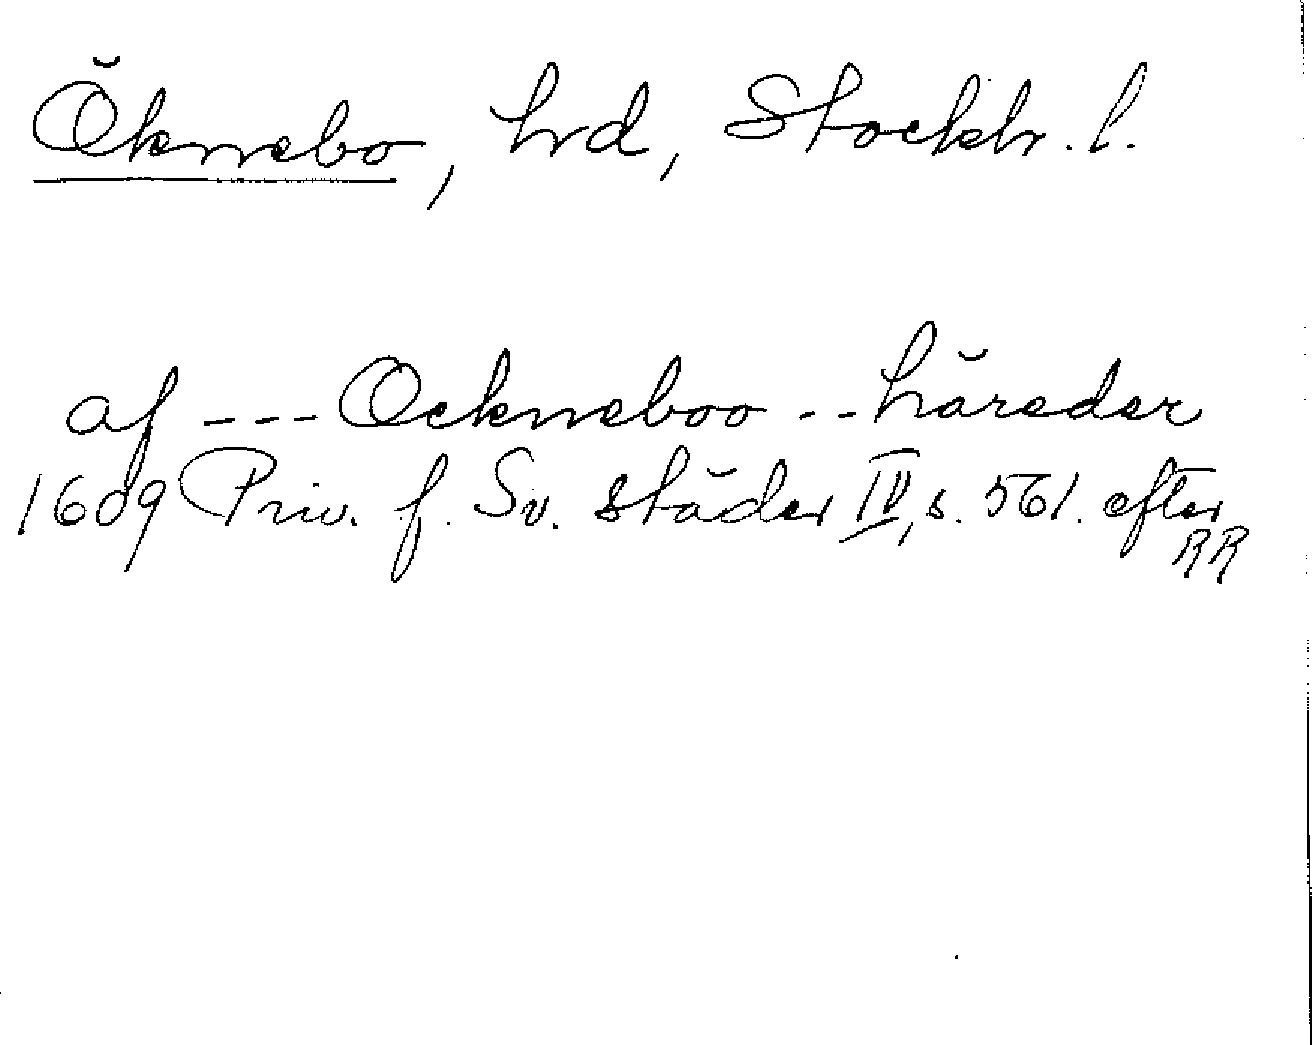 Öknebo, hrd, Stockh. l.
af --- Oekneboo -- häreder
1609 Priv. f. Sv. städer IV, s. 561. efter
RR